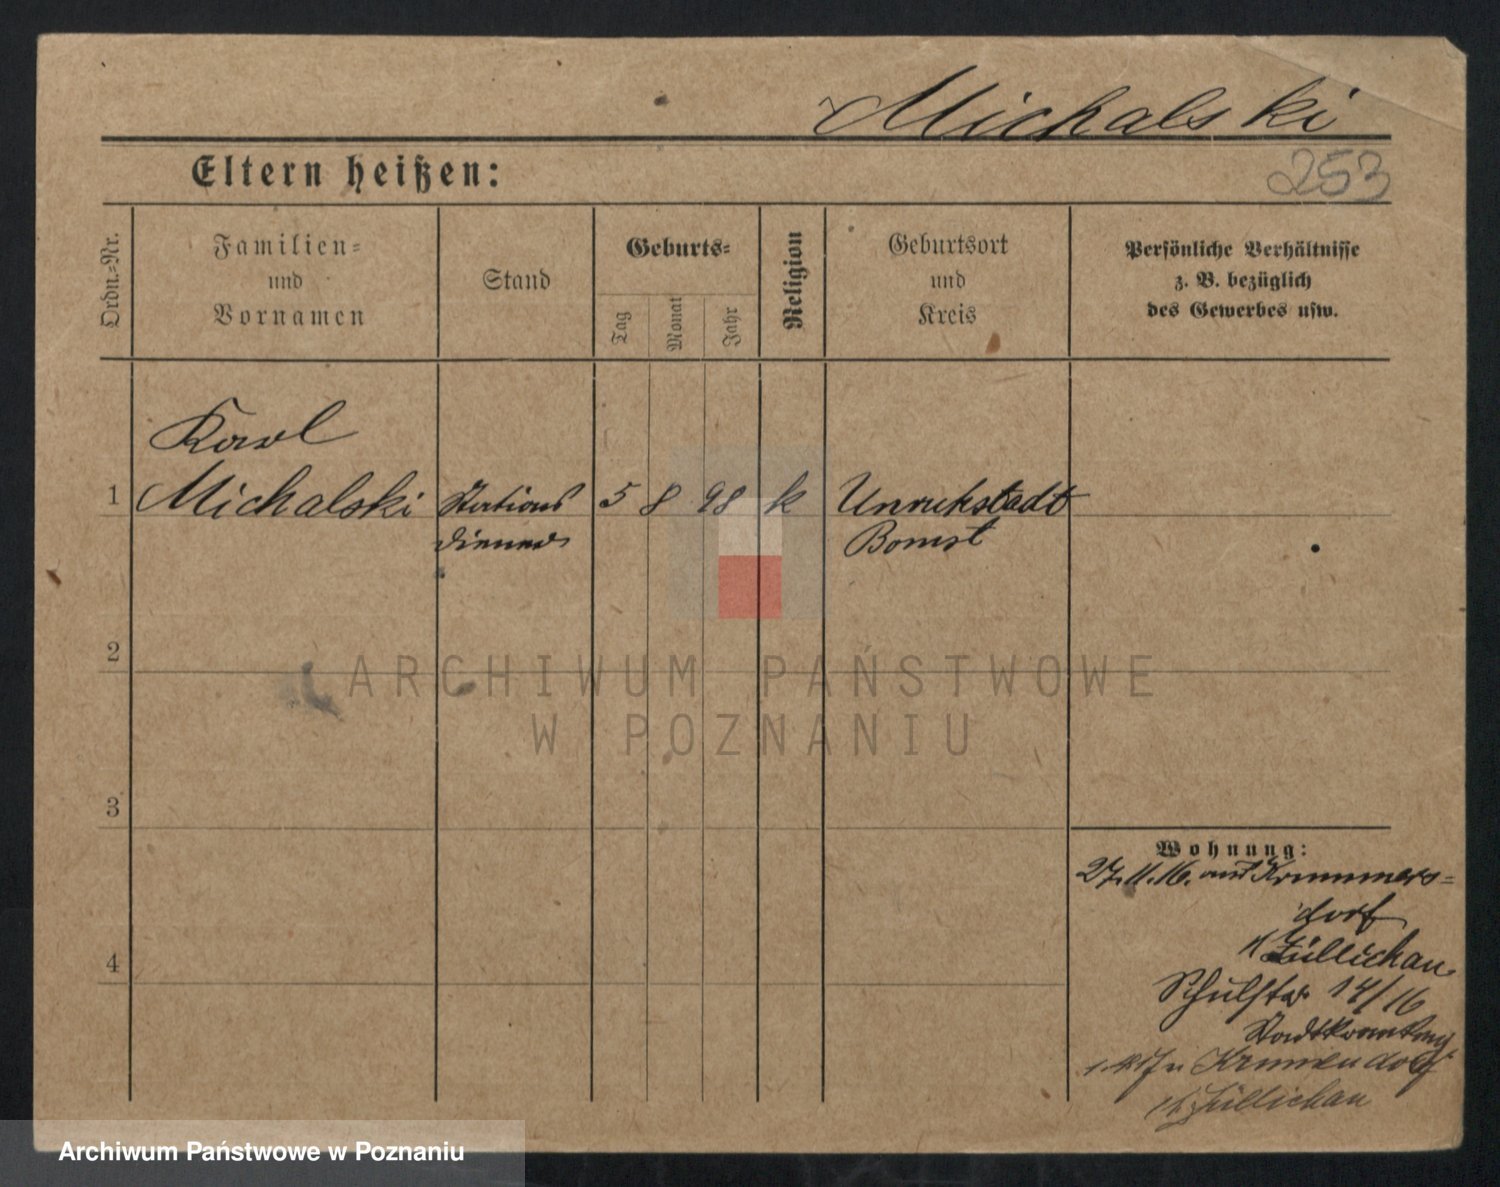 Michalski
Eltern heißen:
253
Ordn.-Nr.
Familien-
und
Vornamen
Stand
Geburts-
Tag
Monat
Jahr
Religion
Geburtsort
und
Kreis
Persönliche Verhältnisse
z. B. bezüglich
des Gewerbes usw.
Karl
1 Michalski Stations 5 8 98 k Unruhstadt
diener Bomst
2
3
4
Wohnung:
27.11.16. aus Krummers-
dorf
Züllichau
Schulstr 14/16
Stadtkrankhs
Züllichau
ARCHIWUM PAŃSTWOWE
W POZNANIU
Archiwum Państwowe w Poznaniu